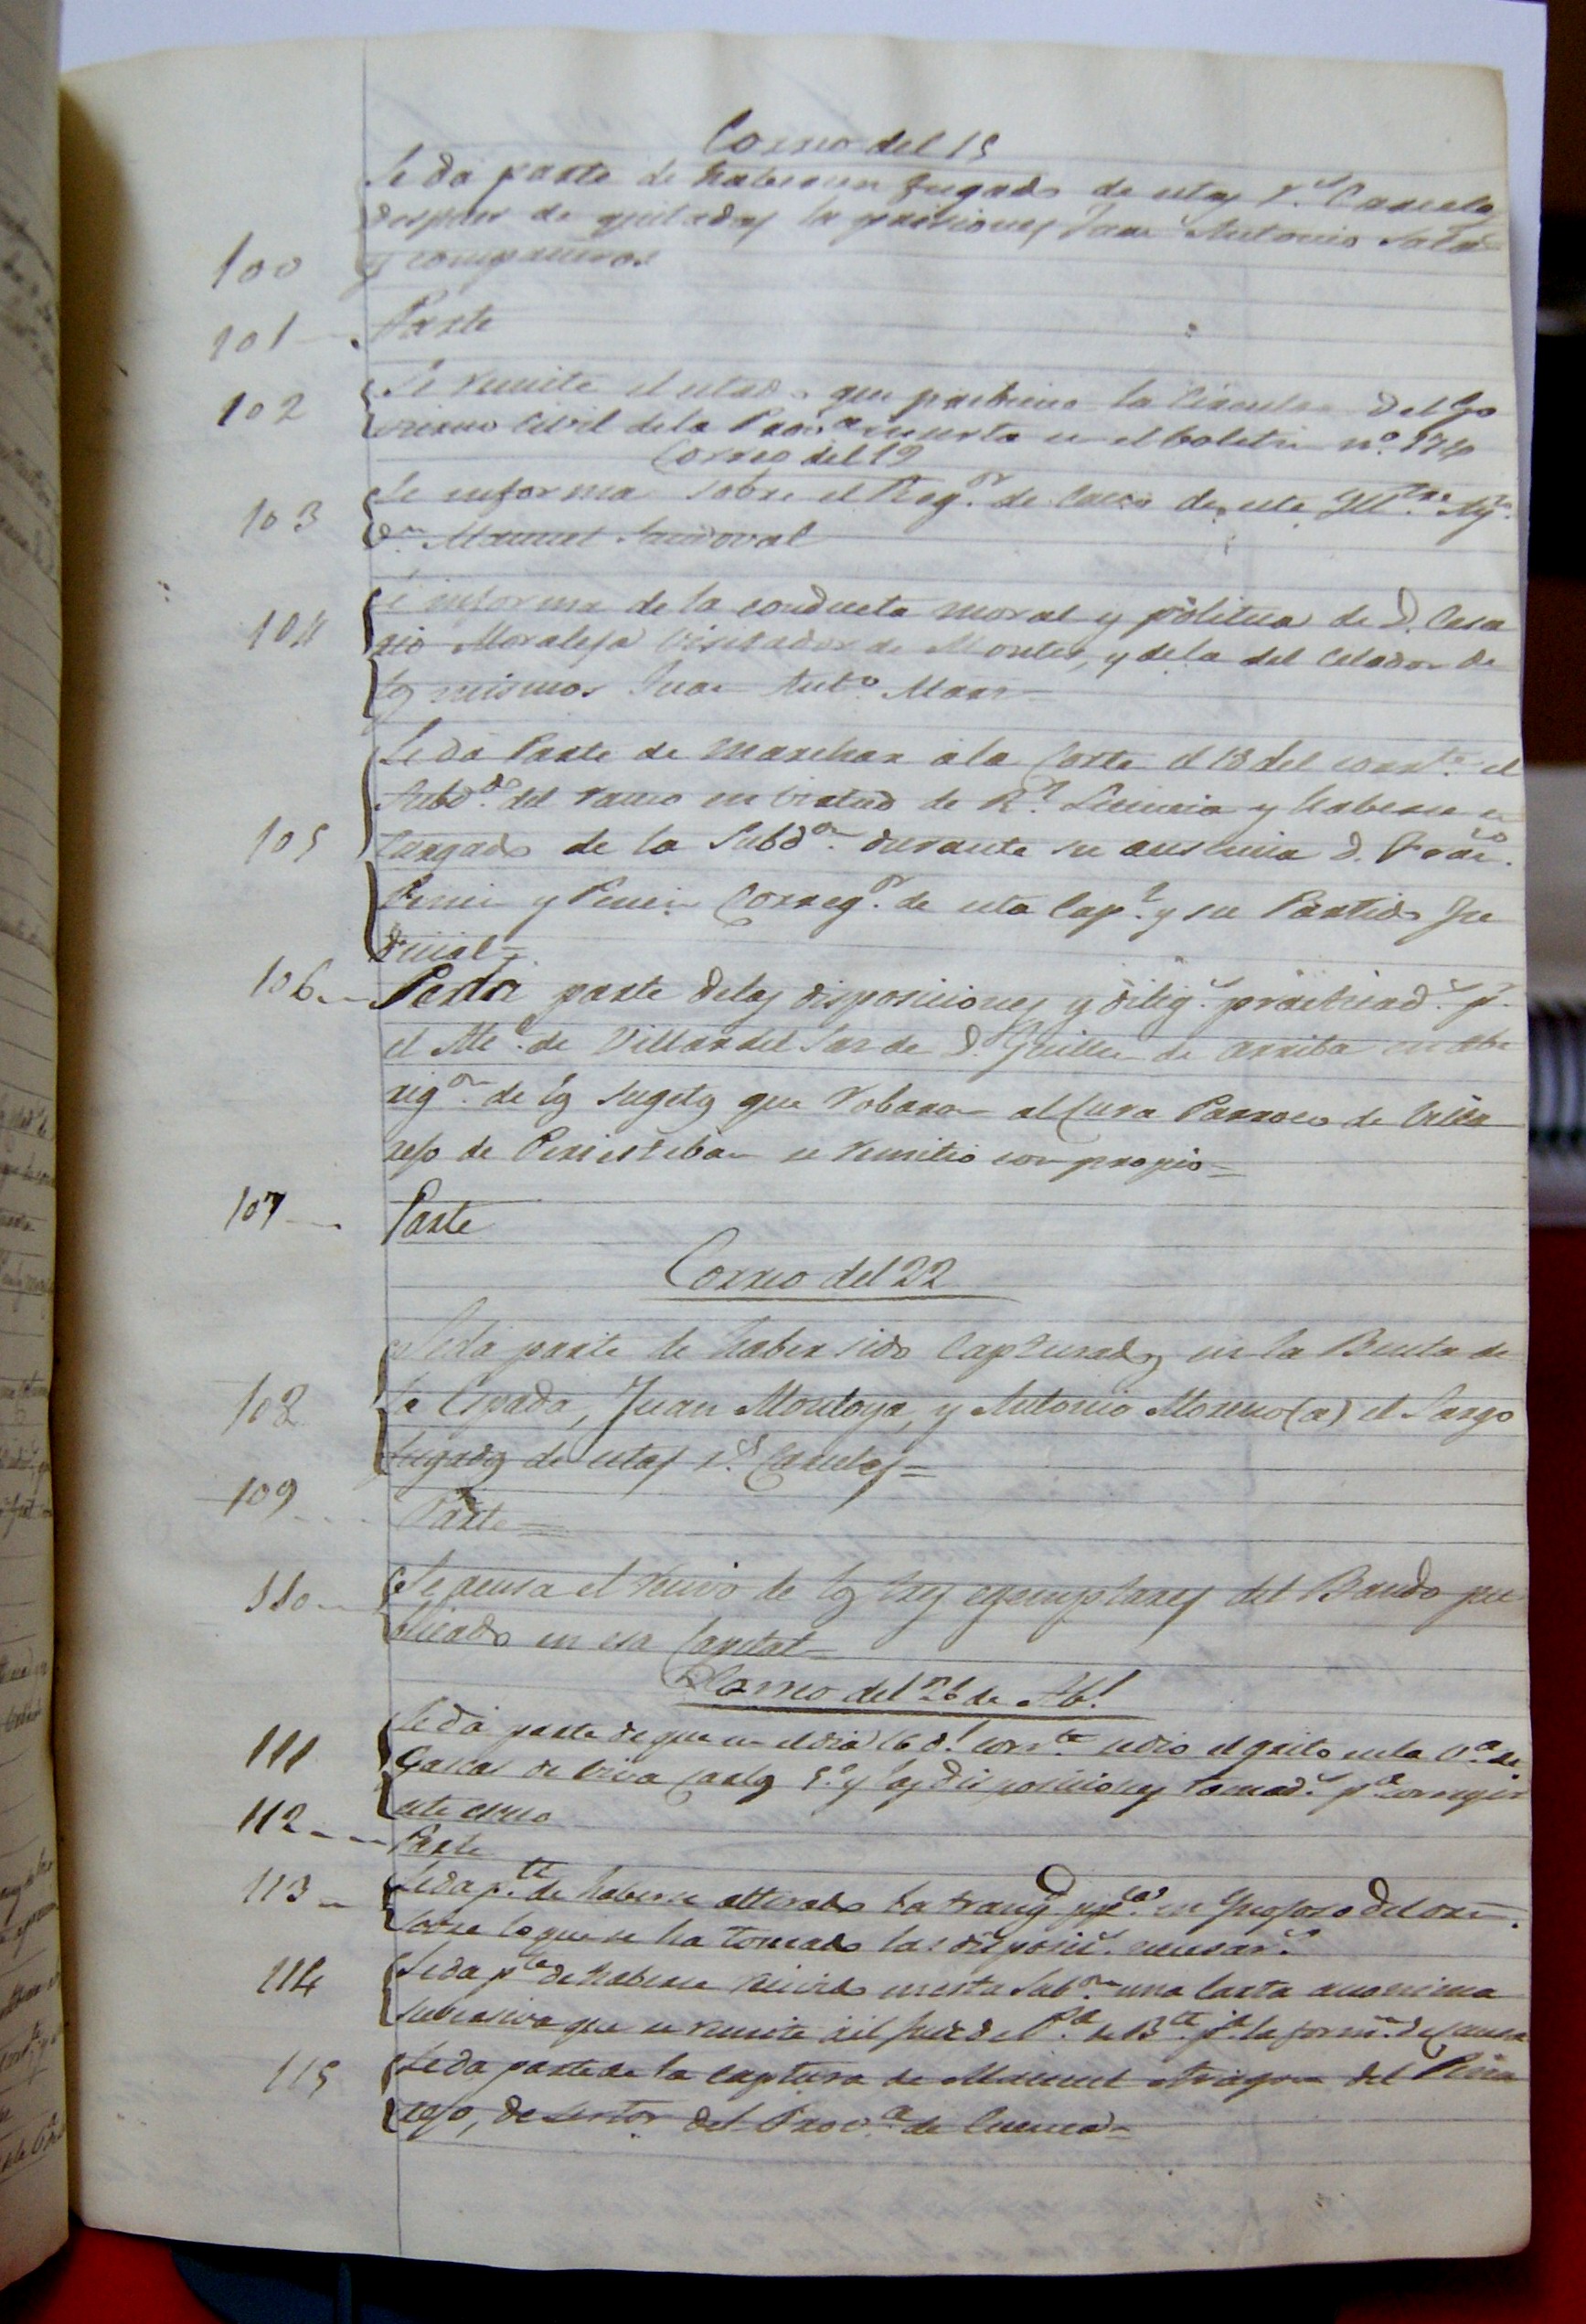 Correo del 15
Se da parte de haberse fugado de estas r.s Carceles
despues de quitadas las prisiones Jose Antonio
100 y compañeros
101 Parte
102 Se remite el estado que previene la Circular del Go
vierno Civil de la Prov.a inserta en el boletin n.o
Correo del 19
103 Se informa sobre el Reg.or de de este Ill.tre Ay.to
D.n Manuel Sandoval
104 Se informa de la conducta moral y politica de D. Cesa
reo Moraleja Visitador de Montes, y de la del Celador de
los mismos Juan Ant.o
Se da Parte de marchar a la Corte el 18 del corr.te el
Subd.do del ramo en virtud de R.l Licencia y haberse en
105 cargado de la Subd.on durante su ausencia D. Fran.co
y Correg.or de esta Cap.l y su Partido Ju
dicial=
106 Se da parte de las disposiciones y dilig.s practicad.s p.r
el Alc.e de Villar del Saz de D. Guillen de Arriba en abe
rig.on de los sugetos que robaron al Cura Parroco de Villa
rejo de Periesteban se remitio con propio=
107 Parte
Correo del 22
Se da parte de haber sido Capturados en la Benta de
108 la Espada, Juan Montoya, y Antonio Moreno (a) el Largo
fugados de estas r.s Carceles=
109 Parte=
110 Se acusa el recivo de los tres egemplares del Bando pu
blicado en esa Capital=
Correo del 26 de Ab.l
111 Se da parte de que en el dia 16 d.l corr.te se dio el grito en la V.a de
de viva Carlos 5.o y las disposiciones tomad.s p.a corregir
este
112 Parte
113 Se da p.te de haberse alterado la tranq.d pp.ca en
sobre lo que se ha tomado las disposic.s necesar.s
114 Se da p.te de haberse recivido en esta Sub.on una Carta anonima
subersiva que se remite al Juez de p.a la form.on de Causa
115 Se da parte de la captura de Manuel del Pina
rejo, desertor del Prov.l de Cuenca=